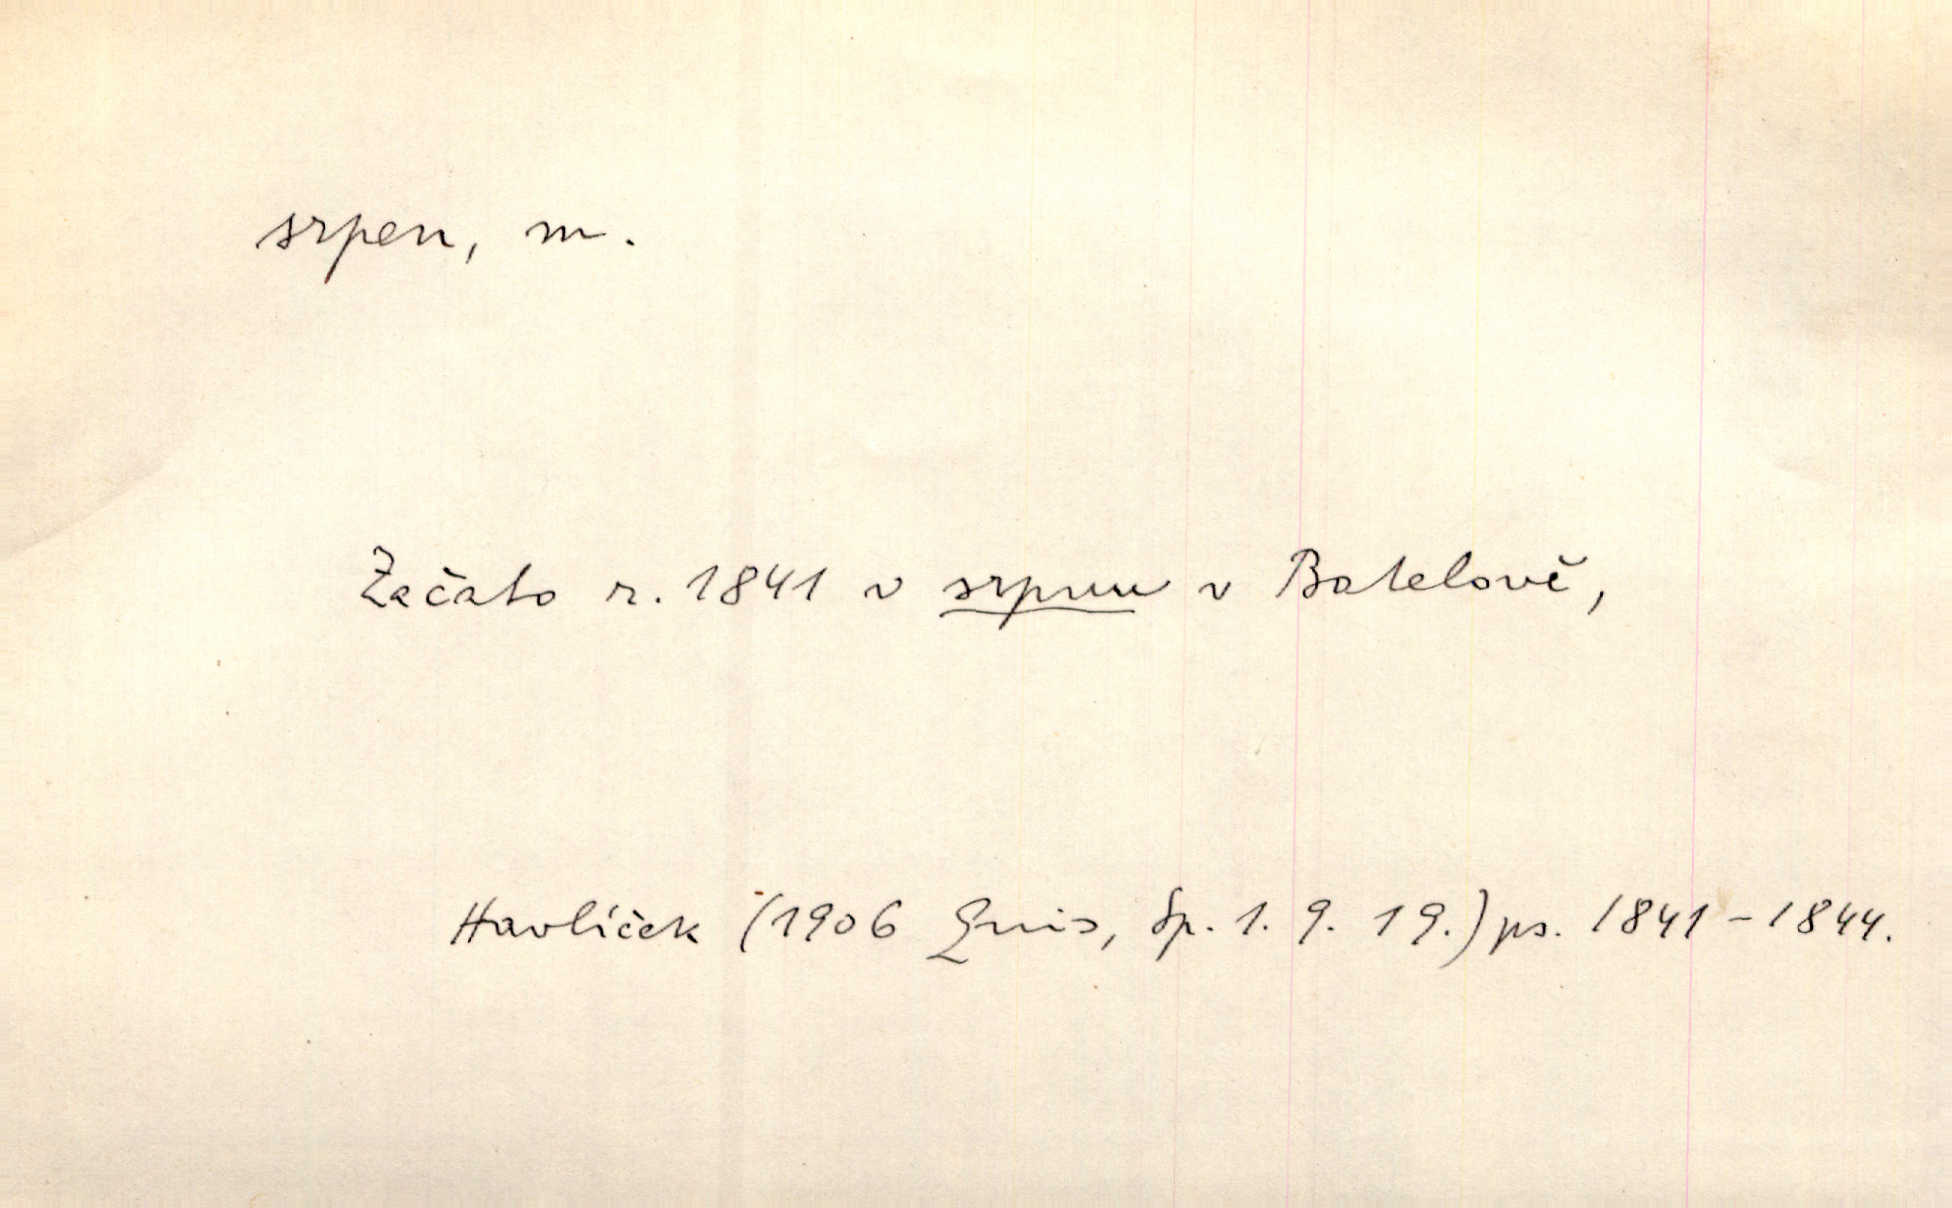 srpen, m.
Začato r. 1841 v srpnu v Batelově,
Havlíček (1906 Quis, Sp. 1. 9. 19.) ps. 1841-1844.